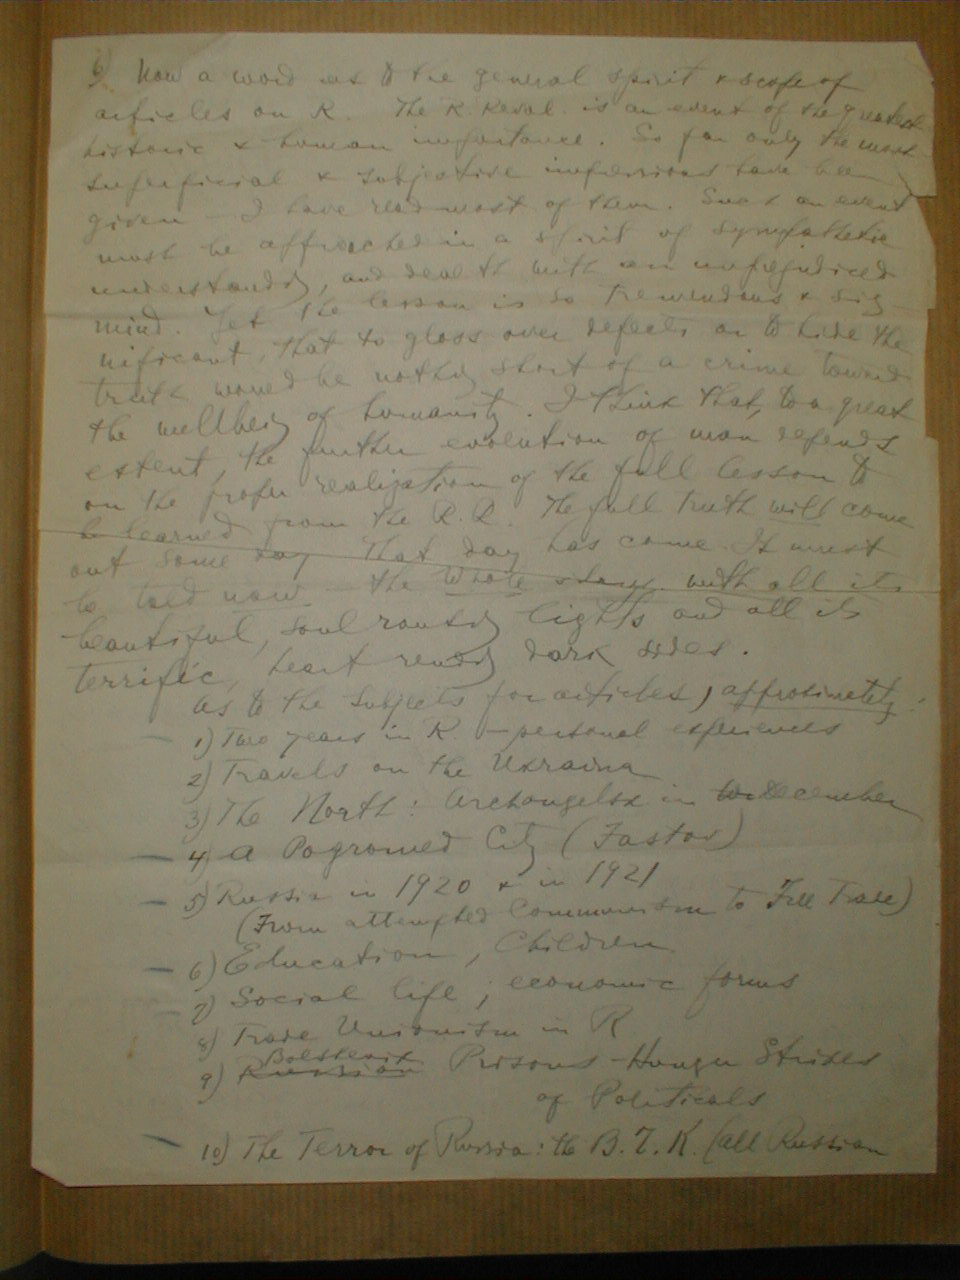 6) Now a word as to the general spirit & scope of
articles on R. The R. Revol. is an event of the greatest
historic & human importance. So far only the most
superficial & subjective impressions have been
given — I have read most of them. Such an event
must be approached in a spirit of sympathetic
understanding, and dealt with an unprejudiced
mind. Yet the lesson is so tremendous & sig-
nificant, that to gloss over defects or to hide the
truth would be nothing short of a crime toward
the wellbeing of humanity. I think that, to a great
extent, the further evolution of man depends
on the proper realization of the full lesson to
be learned from the R. R. The full truth will come
out some day. That day has come. It must
be told now — the whole story, with all its
beautiful, soul rousing lights and all its
terrific, heart rending dark sides.
As to the subjects for articles, approximately:
1) Two years in R — personal experiences
2) Travels on the Ukraina
3) The North: Archangelsk in December
4) A Pogromed City (Fastov)
5) Russia in 1920 & in 1921
(From attempted Communism to Free Trade)
6) Education, Children
7) Social life; economic forms
8) Trade Unionism in R
Bolshevik
9) Russian Prisons – Hunger Strikes
of Politicals
10) The Terror of Russia: the B. T. K. (all Russian